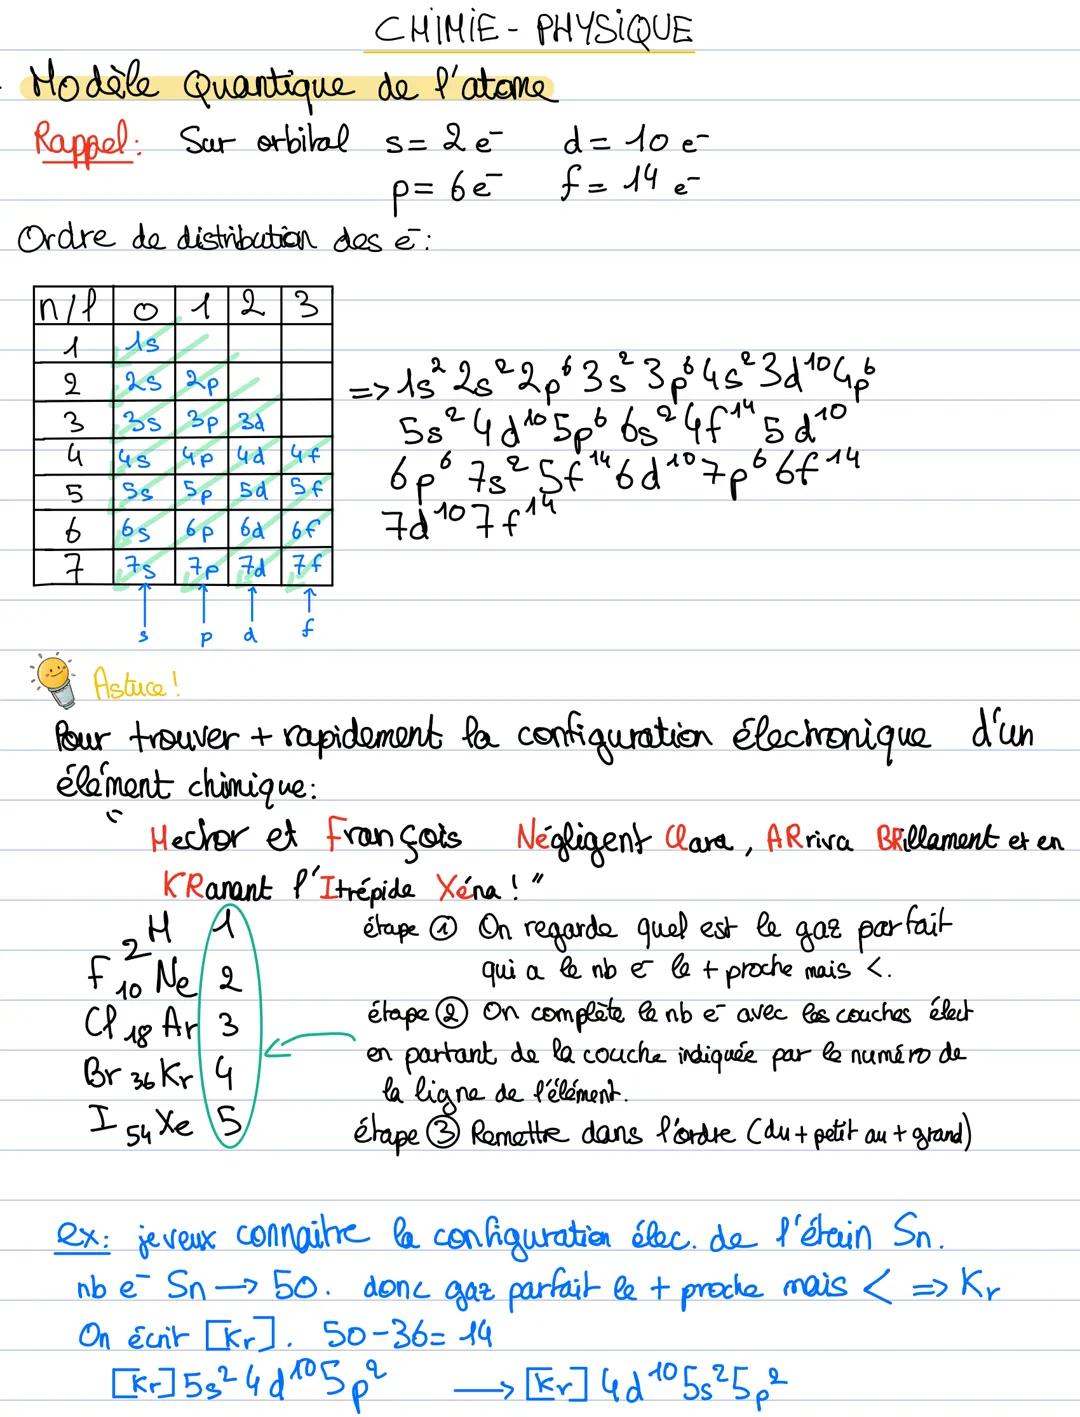 CHIMIE - PHYSIQUE
Modèle Quantique de l'atome
Rappel: Sur orbital s= 2 e⁻ d= 10 e⁻
p= 6e⁻ f= 14 e⁻
Ordre de distribution des e⁻:
n/l 0 1 2 3
1 1s
2 2s 2p
3 3s 3p 3d
4 4s 4p 4d 4f
5 5s 5p 5d 5f
6 6s 6p 6d 6f
7 7s 7p 7d 7f
s p d f
=> 1s² 2s² 2p⁶ 3s² 3p⁶ 4s² 3d¹⁰ 4p⁶
5s² 4d¹⁰ 5p⁶ 6s² 4f¹⁴ 5d¹⁰
6p⁶ 7s² 5f¹⁴ 6d¹⁰ 7p⁶ 6f¹⁴
7d¹⁰ 7f¹⁴
Astuce !
Pour trouver + rapidement la configuration électronique d'un
élément chimique:
" Hector et François Négligent Clara, ARriva BRillament et en
KRanant l'Itrépide Xéna ! "
H 2 1
F 10 Ne 2
Cl 18 Ar 3
Br 36 Kr 4
I 54 Xe 5
étape ① On regarde quel est le gaz parfait
qui a le nb e⁻ le + proche mais <.
étape ② On complète le nb e⁻ avec les couches élect
en partant de la couche indiquée par le numéro de
la ligne de l'élément.
étape ③ Remettre dans l'ordre (du + petit au + grand)
ex: je veux connaitre la configuration élec. de l'étain Sn.
nb e⁻ Sn → 50. donc gaz parfait le + proche mais < => Kr
On écrit [Kr]. 50-36= 14
[Kr] 5s² 4d¹⁰ 5p² → [Kr] 4d¹⁰ 5s² 5p²